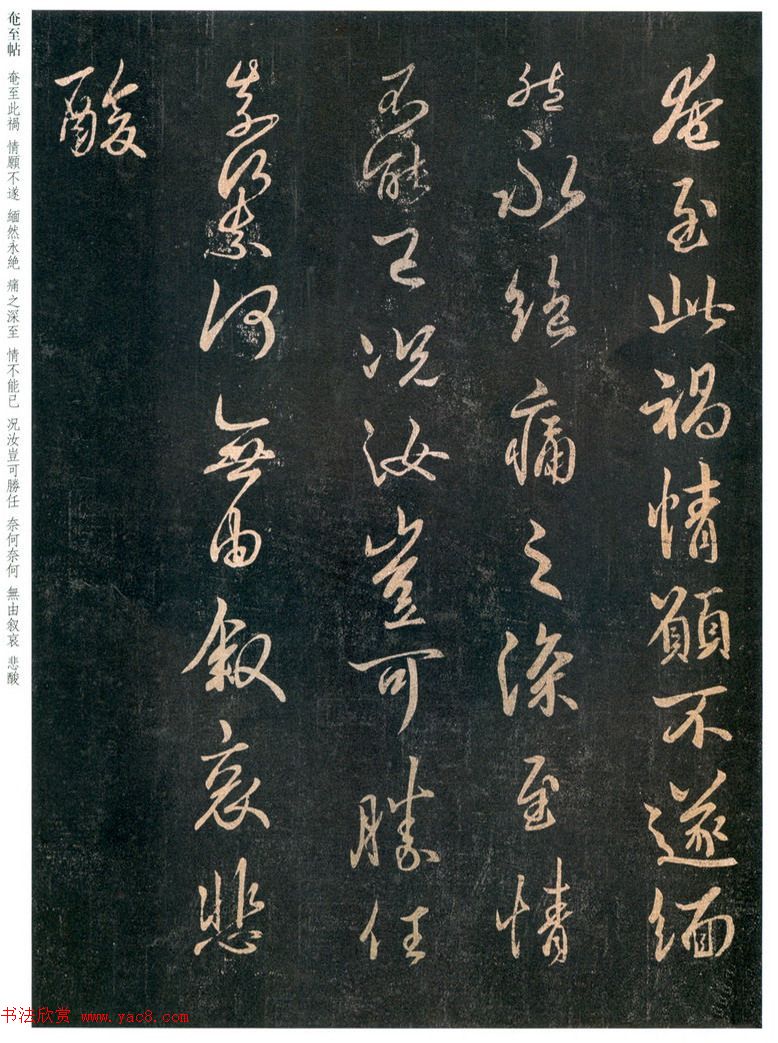 奄至此禍情願不遂緬
然永絶痛之深至情
不能已况汝豈可勝任
奈何奈何無由叙哀悲
酸
奄至帖 奄至此禍 情願不遂 緬然永絶 痛之深至 情不能已 况汝豈可勝任 奈何奈何 無由叙哀 悲酸
书法欣赏 www.yac8.com